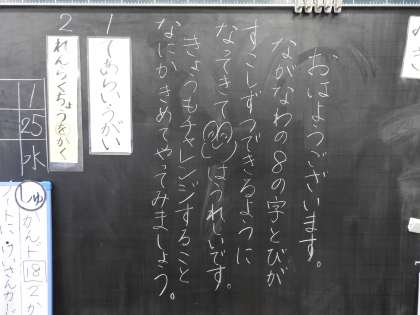 おはようございます。
ながなわの8の字とびが
すこしずつできるように
なってきて
はうれしいです。
きょうもチャレンジすること
なにかきめてやってみましょう。
1
てあらいうがい
2
れんらくちょうをかく
1
25
水
しゅ
かんド
18
2